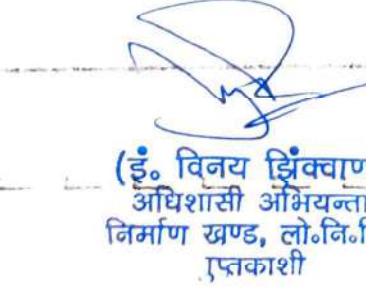 (इं० विनय झिंक्वाण
अधिशासी अभियन्ता
निर्माण खण्ड, लो०नि०वि
प्तकाशी